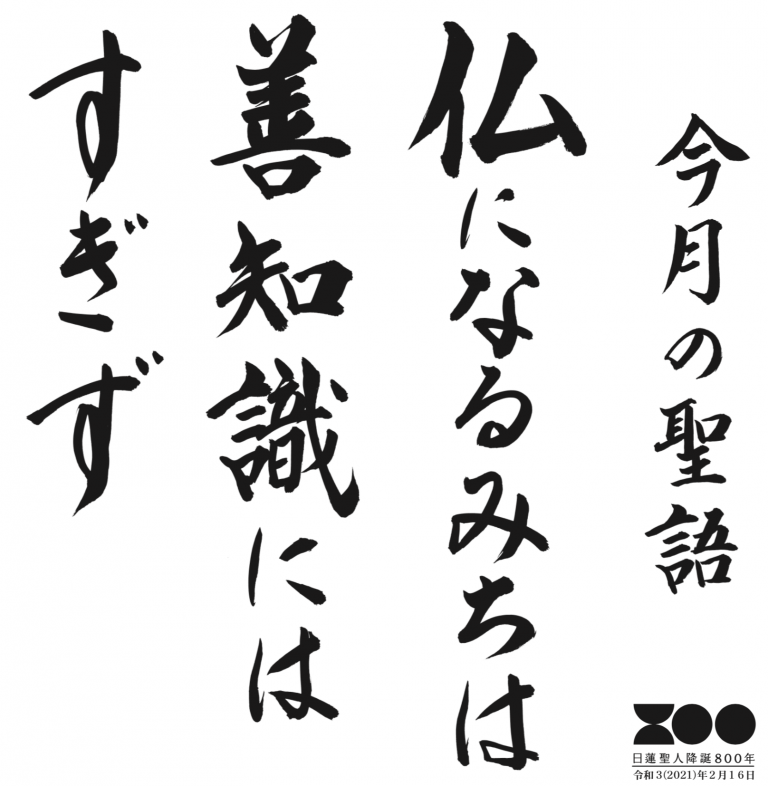 今月の聖語
仏になるみちは
善知識には
すぎず
800
日蓮聖人降誕800年
令和3(2021)年2月16日